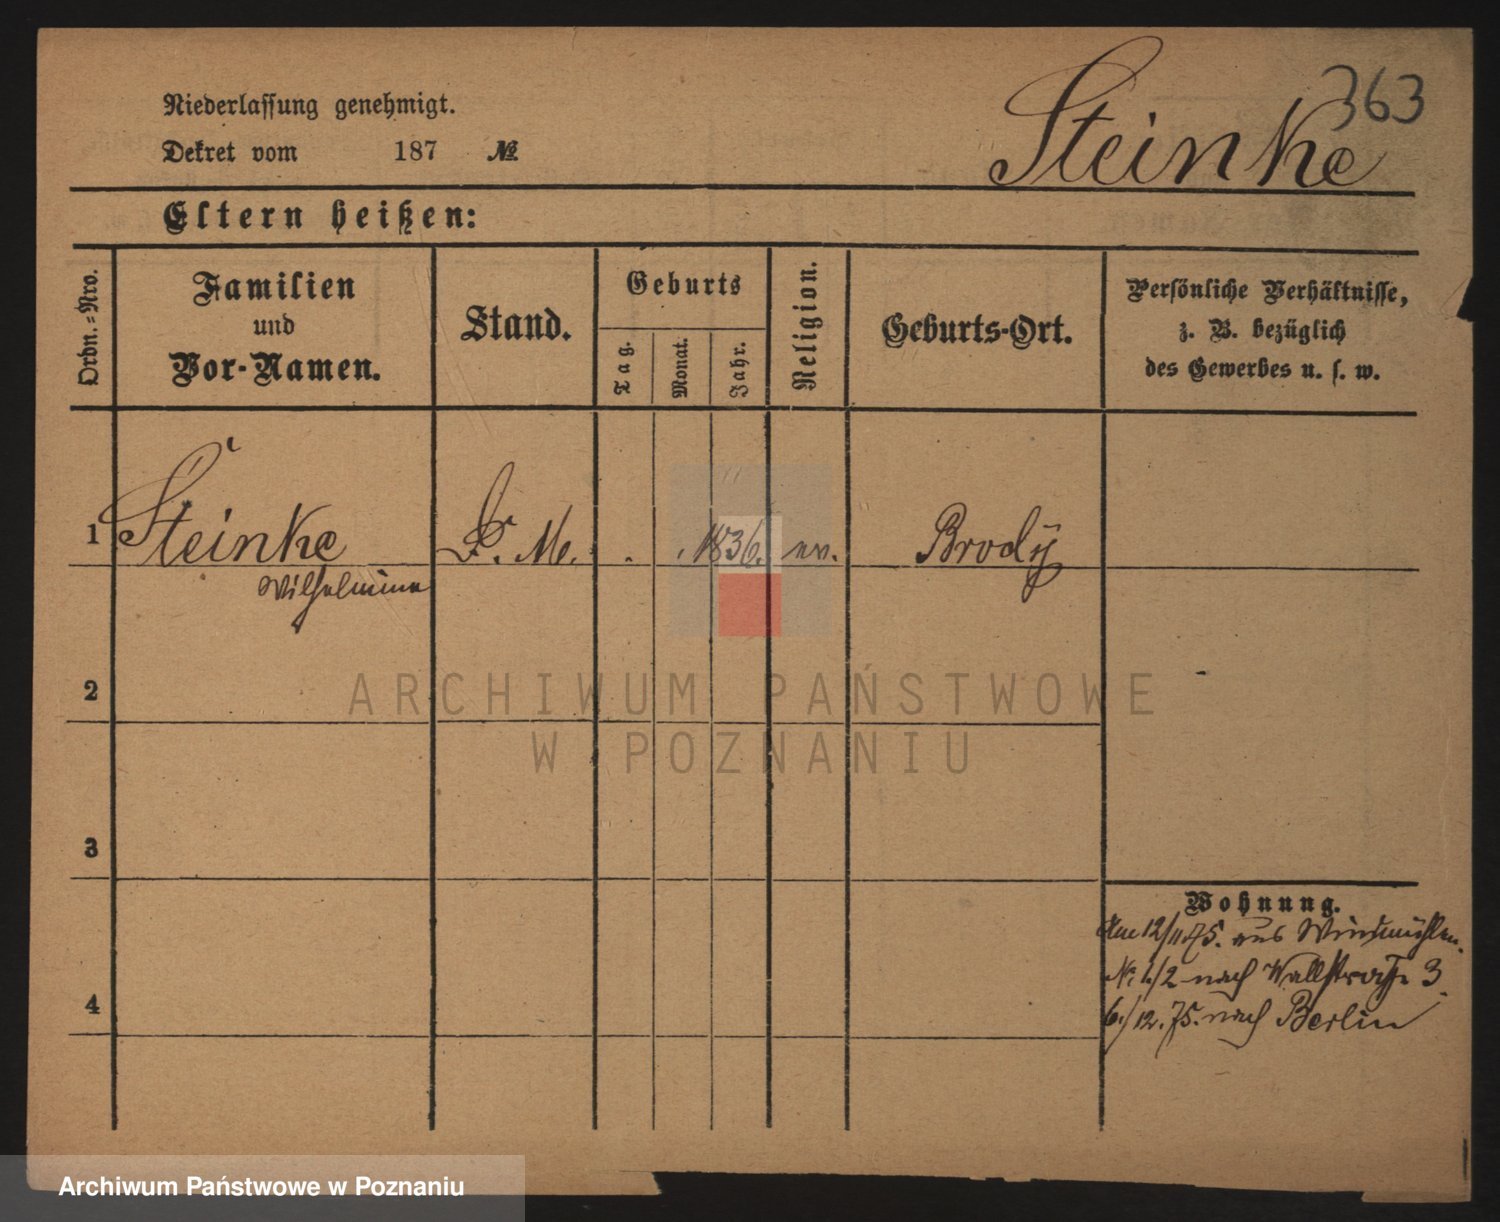 363
Niederlassung genehmigt.
Steinke
Dekret vom 187 №
Eltern heißen:
Ordn.-Nro.
Familien
und
Vor-Namen.
Stand.
Geburts
Tag.
Monat.
Jahr.
Religion.
Geburts-Ort.
Persönliche Verhältnisse,
z. B. bezüglich
des Gewerbes u. s. w.
1 Steinke D. M. 1836. ev. Brody
Wilhelmine
2
3
4
Wohnung.
Am 12/11 75. aus Windmühlen.
No 1/2 nach Wallstraße 3.
6./12. 75. nach Berlin
ARCHIWUM PAŃSTWOWE
W POZNANIU
Archiwum Państwowe w Poznaniu